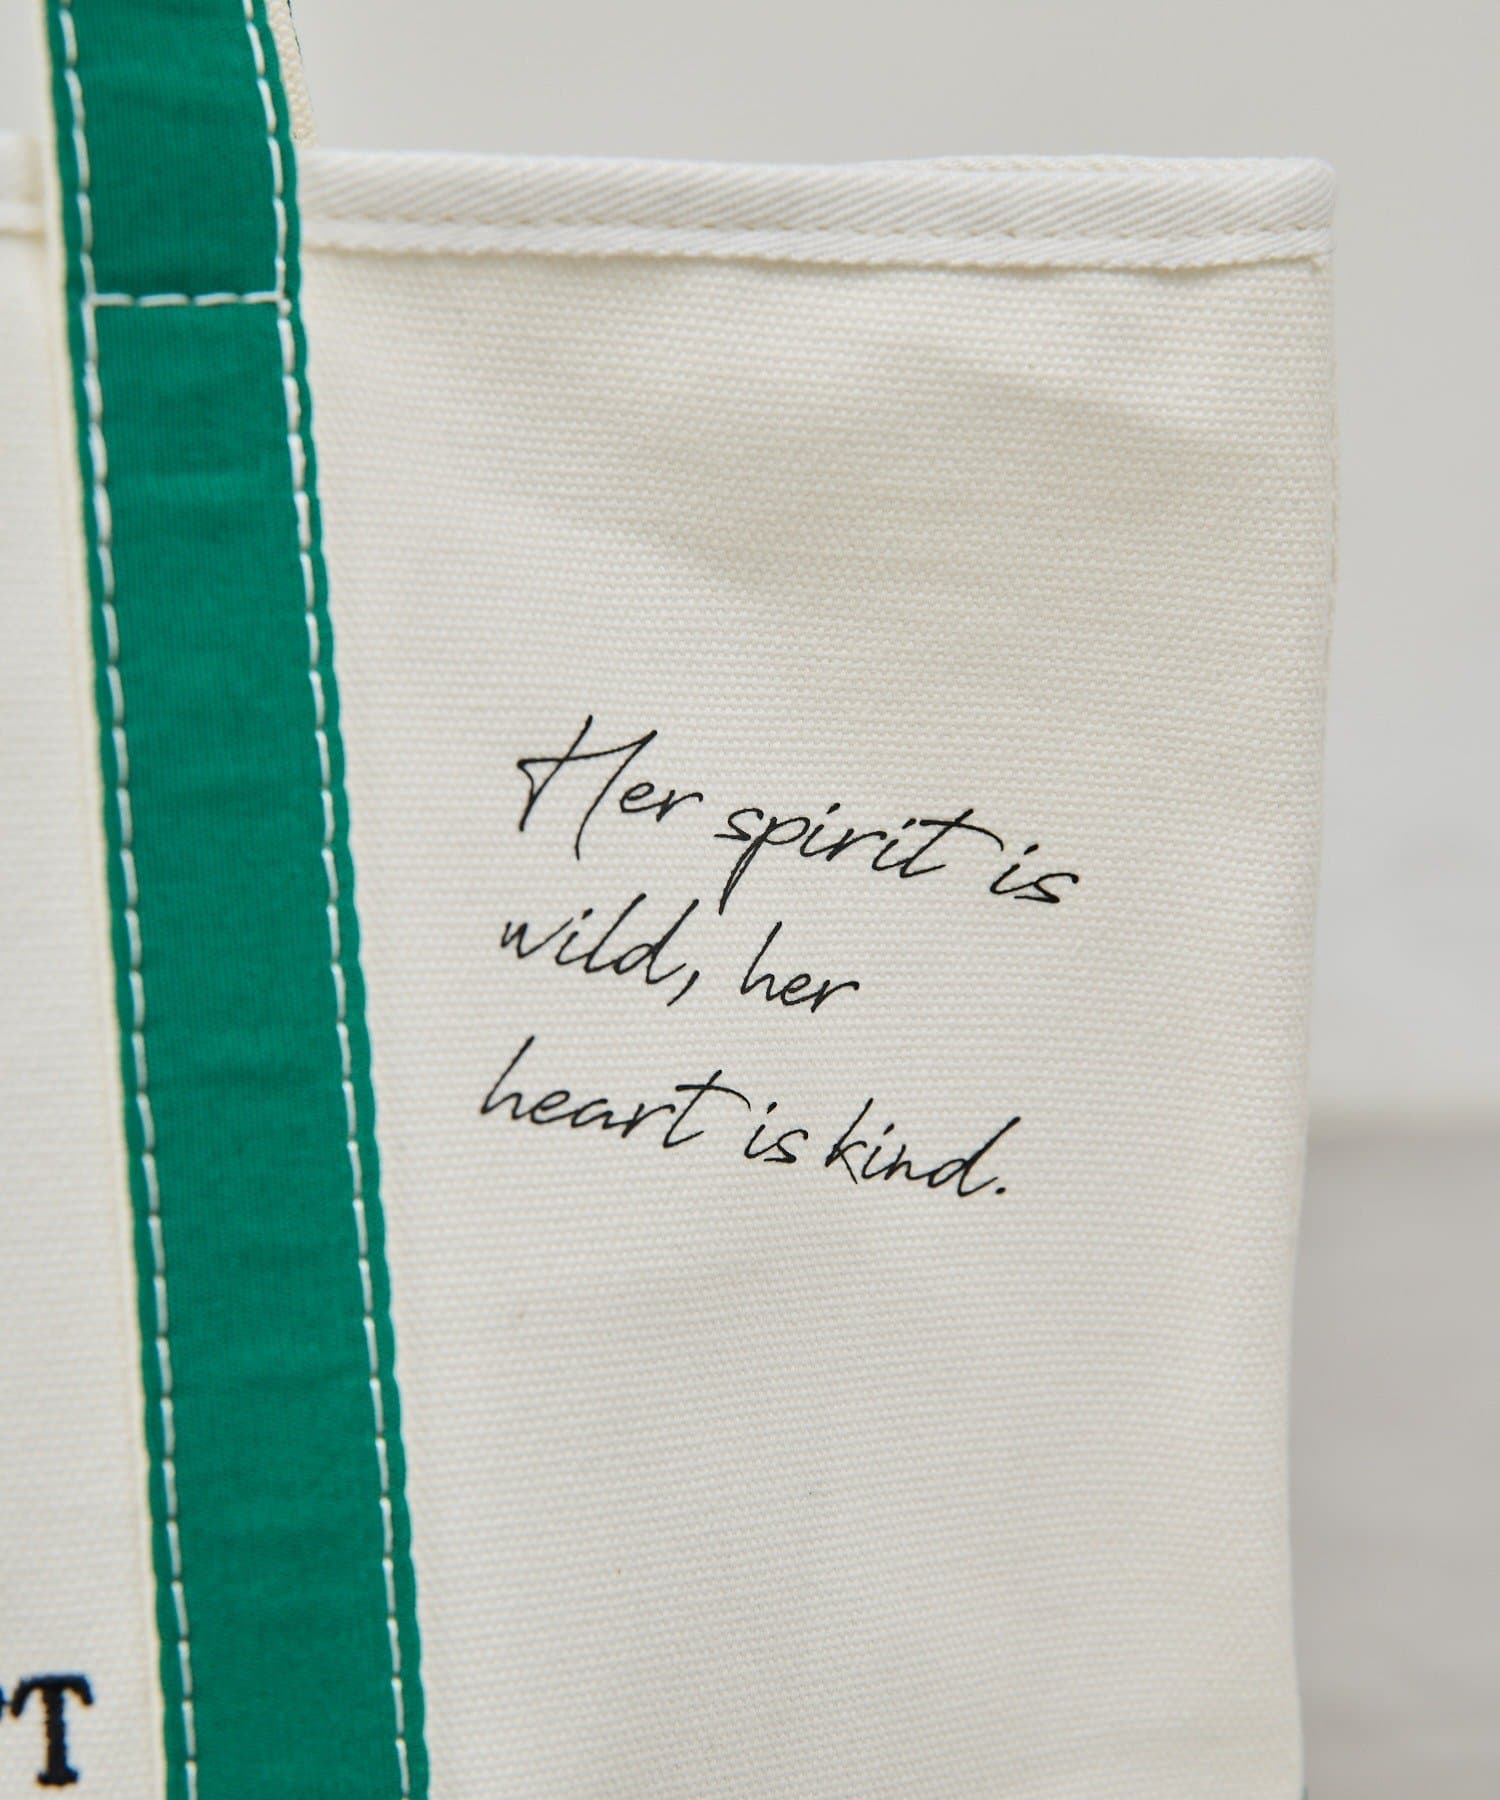 Her spirit is
wild, her
heart is kind.